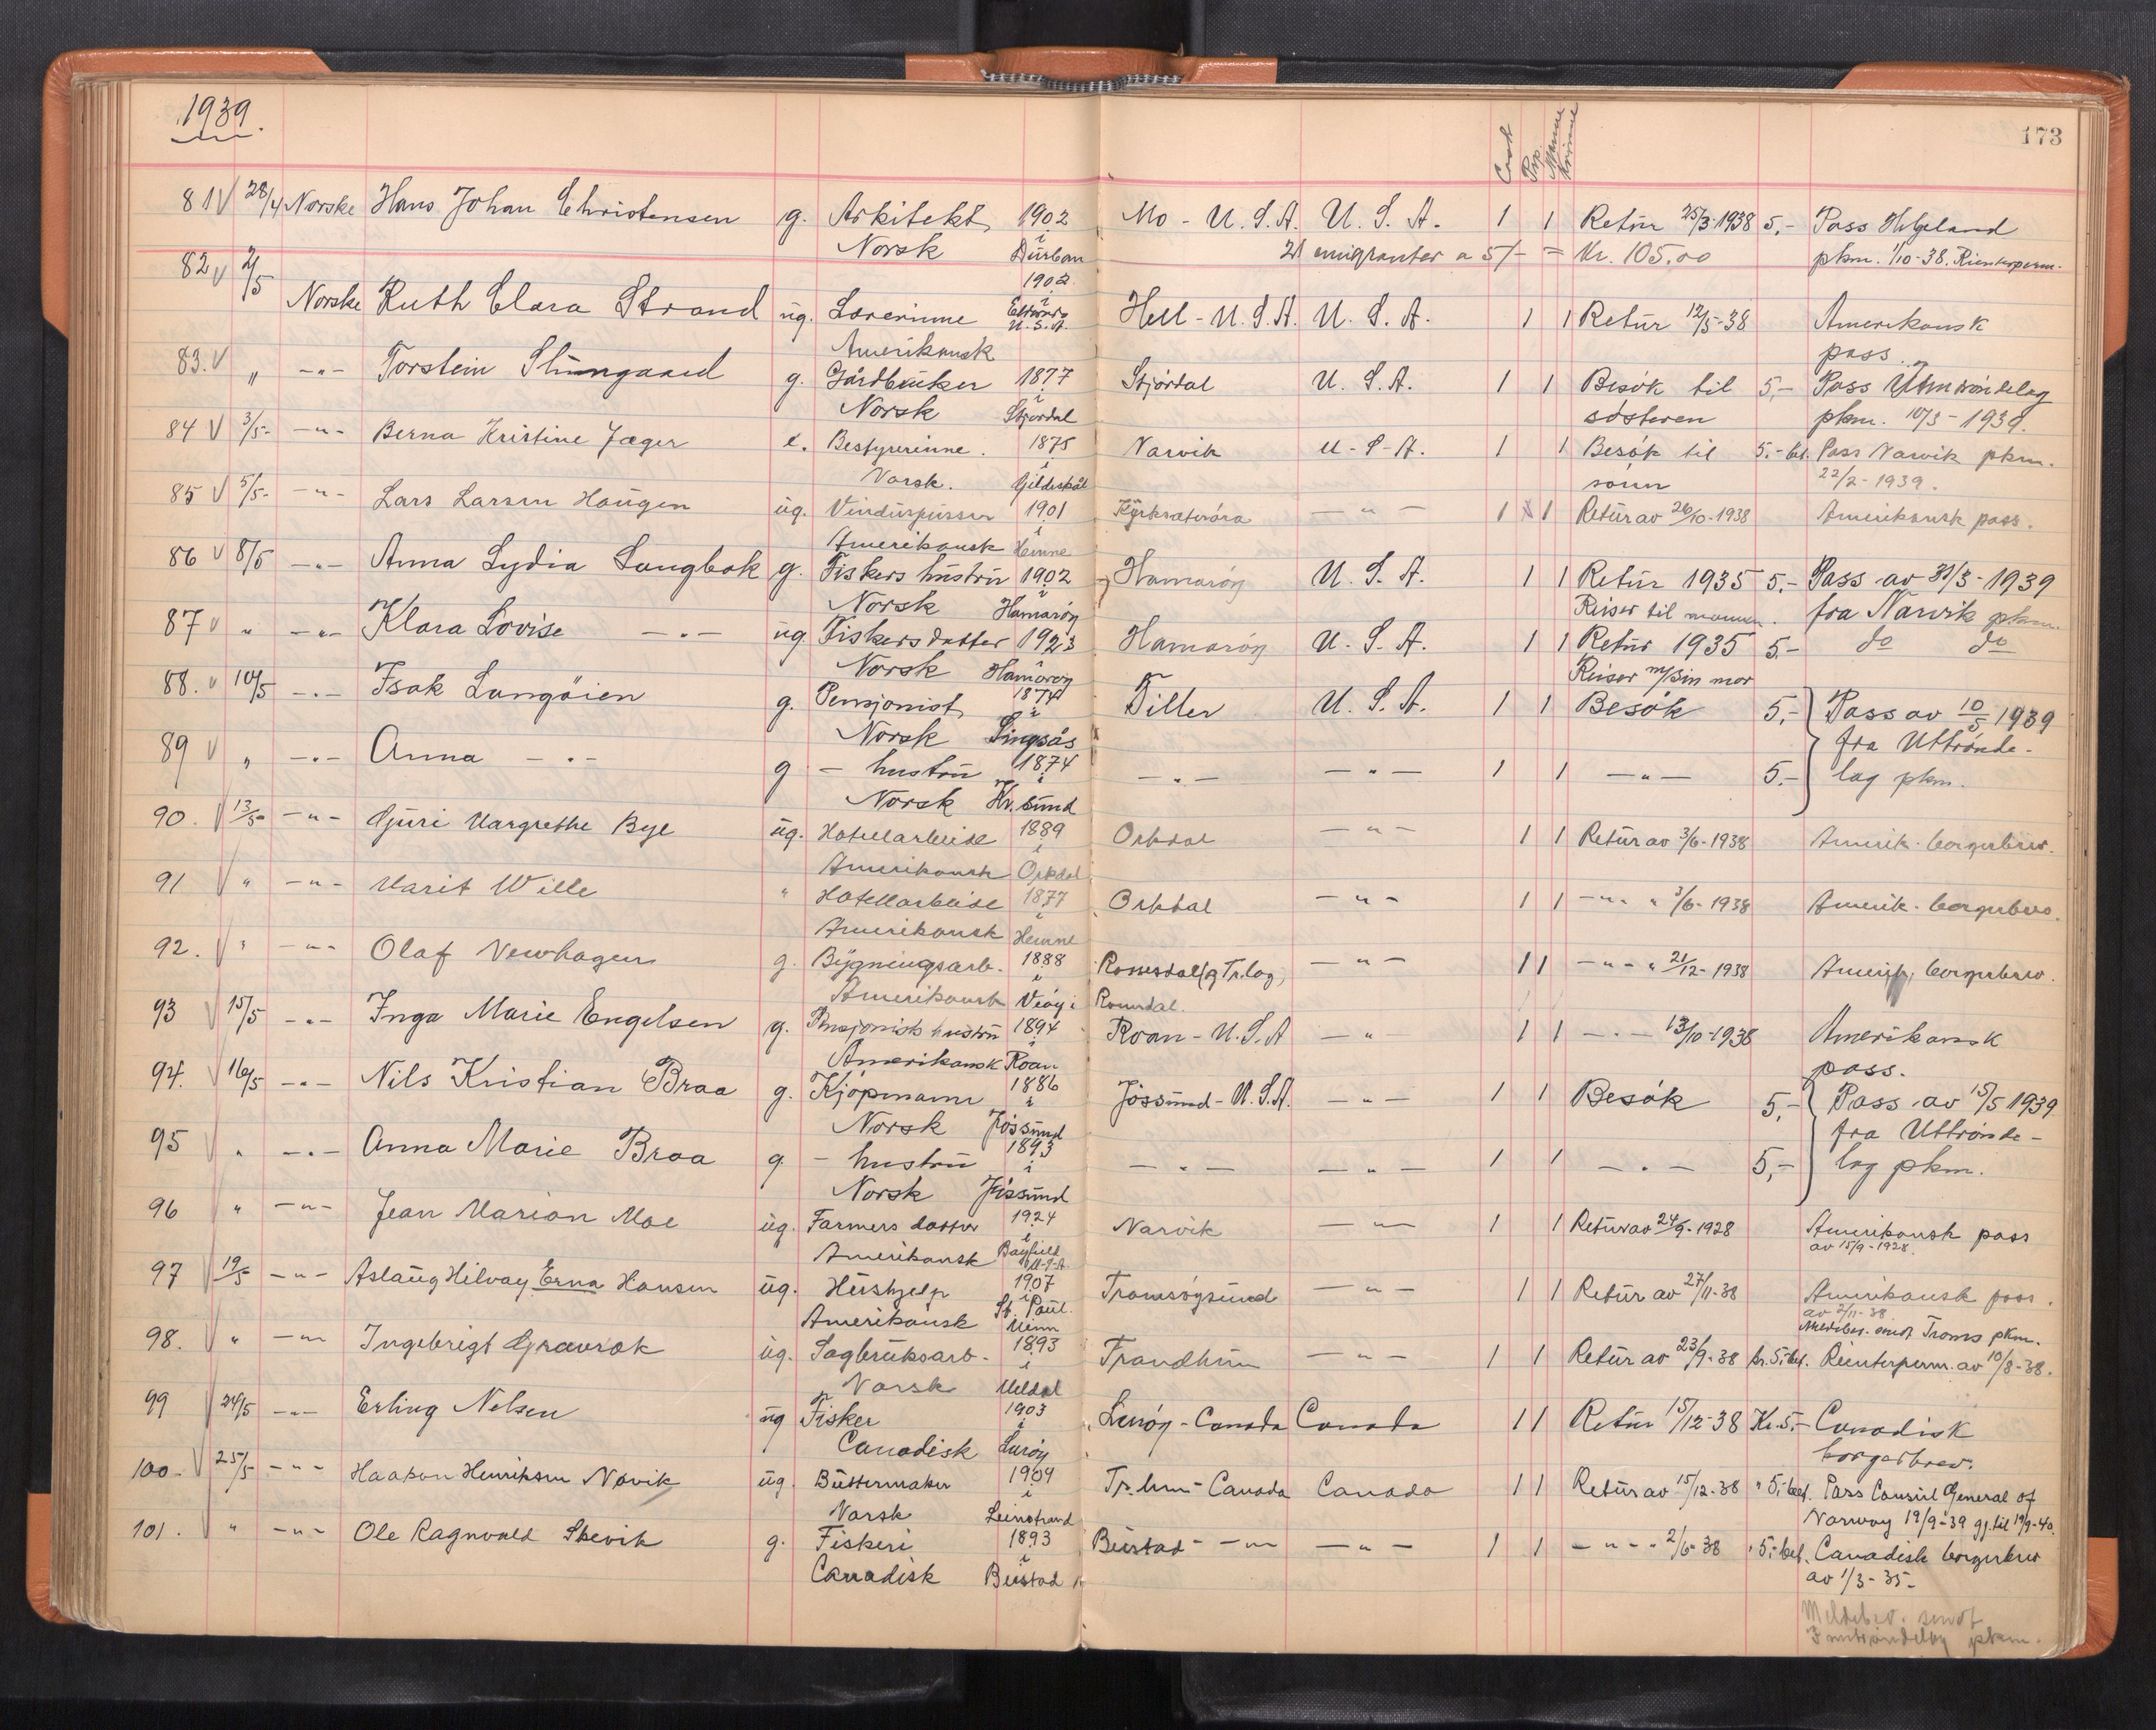 1939. 173
Cust Psp. Menn Kvinne
81 √ 28/4 Norske Hans Johan Christensen g. Arkitekt, 1902 Mo - U.S.A. U.S.A. 1 1 Retur 25/3-1938 5,- Pass Helgeland
Norsk i Durban 21 emigranter a 5/- = Kr. 105.00 pkm. 1/10-38.
82 √ 2/5 Norske Ruth Clara Strand ug. Lærerinne 1902 i U.S.A. Hell - U.S.A. U.S.A. 1 1 Retur 12/5-38 Amerikansk
Amerikansk pass.
83. √ " -"- Torstein g. Gårdbruker 1877 Stjørdal U.S.A. 1 1 Besøk til 5,- Pass
Norsk i Stjørdal søsteren pkm. 10/3 - 1939.
84 √ 3/5- -"- Berna Kristine Jæger e. Bestyrerinne. 1875 Narvik U-S-A. 1 1 Besøk til 5.- bet. Pass Narvik pkm.
Norsk. i Gildeskål sønn 22/2-1939.
85 √ 5/5- -"- Lars Larsen Haugen ug. Vinduspusser 1901 Kyrksæterøra -"- 1 1 Retur av 26/10-1938 Amerikansk pass.
Amerikansk i Hemne
86 √ 8/5 -"- Anna Lydia Langbak g. Fiskers hustru 1902 Hamarøy U.S.A. 1 1 Retur 1935 5.- Pass av 31/3-1939
Norsk i Hamarøy Reiser til mannen. fra Narvik pkm.
87 √ " -"- Klara Lovise -"- ug Fiskersdatter 1923 Hamarøy U.S.A. 1 1 Retur 1935 5.- do do
Norsk i Hamarøy Reiser m/sin mor
88. √ 10/5 -"- Isak Langøien g. Pensjonist, 1874 Tiller U.S.A. 1 1 Besøk 5,- Pass av 10/5 1939
Norsk i Singsås fra Uttrønde-
89 √ " -"- Anna -"- g - hustru 1874 -"- -"- 1 1 -"- 5.- lag pkm.
Norsk i Kr.sund
90. √ 13/5- -"- Guri Margrethe Bye ug. Hotellarbeide 1889 Orkdal -"- 1 1 Retur av 3/6-1938 Amerik. borgerbrev.
Amerikansk i Orkdal
91 √ " -"- Marit Wille " Hotellarbeide 1877 Orkdal -"- 1 1 -"- " 3/6-1938 Amerik. borgerbrev.
Amerikansk i Hemne
92. √ " -"- Olaf Newhagen g. Bygningsarb. 1888 -"- 1 1 -"- " 21/12-1938 Amerik. borgerbrev.
Amerikansk i Veøy i Romsdal.
93 √ 15/5 -"- Inga Marie Engelsen g. Pensjonists hustru 1894 Roan - U.S.A -"- 1 1 -"- 13/10-1938 Amerikansk
Amerikansk i Roan pass.
94. √ 16/5 -"- Nils Kristian Braa g. Kjøpmann 1886 Jøssund - U.S.A. -"- 1 1 Besøk 5,- Pass av 15/5 1939
Norsk i Jøssund fra Uttrønde-
95 √ " -"- Anna Marie Braa g - hustru 1893 -"- -"- 1 1 -"- 5,- lag pkm.
Norsk i Jøssund
96 √ " -"- Jean Marion Moe ug. Farmers datter 1924 Narvik -"- 1 1 Retur av 24/9-1928 Amerikansk pass
Amerikansk i Bayfield U-S-A. av 15/9-1928.
97 √ 19/5 -"- Aslaug Hilvay Erna Hansen ug. Hushjelp 1907 Tromsøysund -"- 1 1 Retur av 27/11-38 Amerikansk pass.
Amerikansk i St. Paul. Minn av 2/11-38 Meldbev. sendt Troms pkm.
98. √ " -"- Ingebrigt Gravrok ug. Sagbruksarb. 1893 Trondheim -"- 1 1 Retur av 23/9-38 kr. 5,- bet. Reenterperm. av 10/8-38.
Norsk i Meldal
99 24/5 -"- Erling Nelsen ug Fisker 1903 Lurøy - Canada Canada 1 1 Retur 15/12-38 Kr. 5.- Canadisk
Canadisk i Lurøy borgerbrev.
100. √ 25/5 -"- Haakon Henriksen Novik ug. Buttermaker 1909 Tr.heim - Canada Canada 1 1 Retur av 15/12-38 " 5,- bet. Pass Consul General of
Norsk i Leinstrand Norway 19/9-39 gj. til 19/9-40.
101. √ " -"- Ole Ragnvald Skevik g. Fiskeri 1893 Beistad - -"- -"- 1 1 -"- " 2/6-38 " 5,- bet. Canadisk borgerbrev
Canadisk i Beistad av 1/3-35-
Meldebev. sendt
Inntrøndelag pkm.